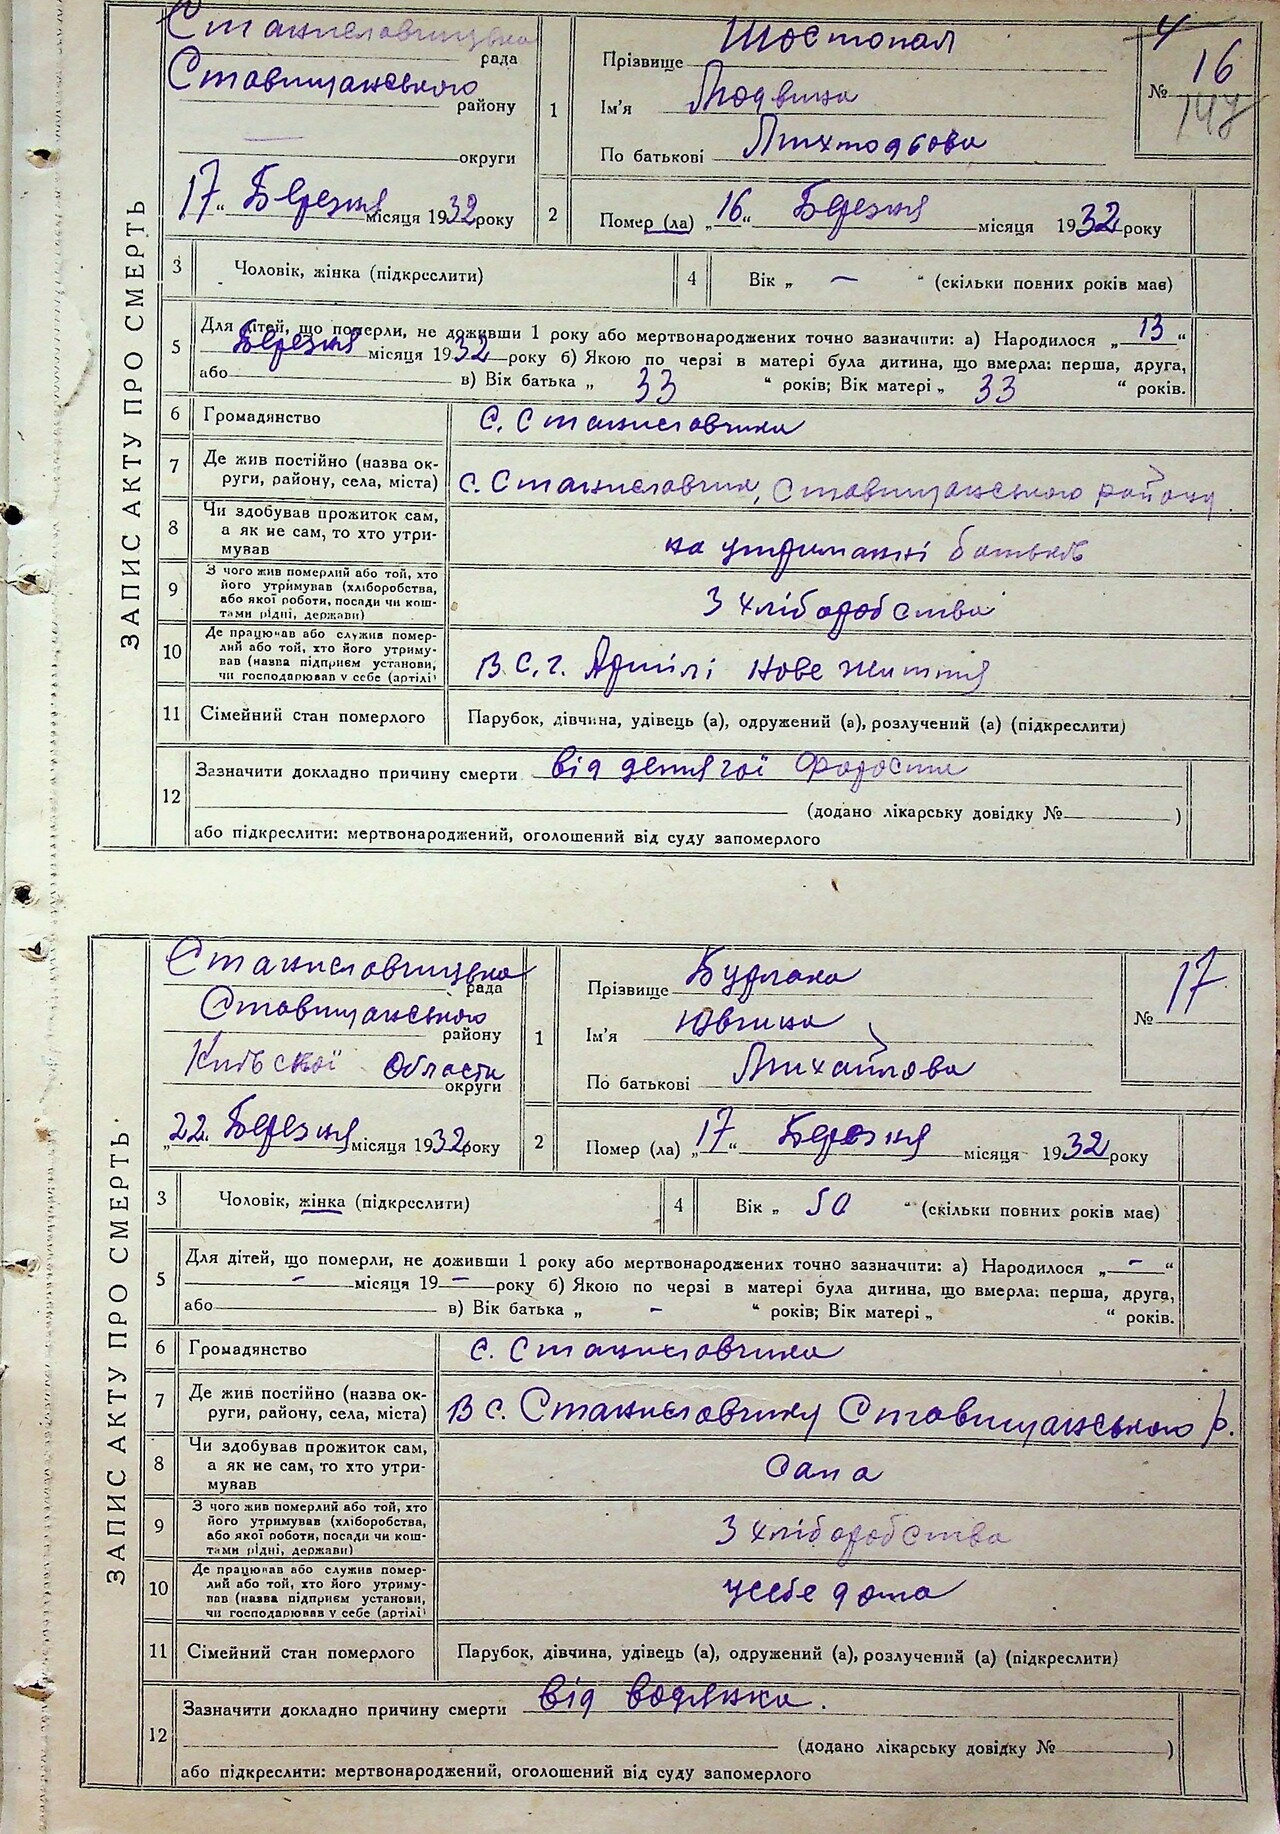 ЗАПИС АКТУ ПРО СМЕРТЬ
Станиславчицька рада
Ставищанського району
округи
„17“ Березня місяця 1932 року
1 Прізвище Шостопал
Ім'я Людвина
По батькові
№ 16
147
2 Помер (ла) „16“ Березня місяця 1932 року
3 Чоловік, жінка (підкреслити)
4 Вік „ – “ (скільки повних років має)
5 Для дітей, що померли, не доживши 1 року або мертвонароджених точно зазначити: а) Народилося „13“
Березня місяця 1932 року б) Якою по черзі в матері була дитина, що вмерла: перша, друга,
або в) Вік батька „ 33 “ років; Вік матері „ 33 “ років.
6 Громадянство с. Станиславчика
7 Де жив постійно (назва ок-
руги, району, села, міста) с. Станиславчик, Ставищанського району
8 Чи здобував прожиток сам,
а як не сам, то хто утри-
мував на утриманні батьків
9 З чого жив померлий або той, хто
його утримував (хліборобства,
або якої роботи, посади чи кош-
тами рідні, держави) З хліборобства
10 Де працював або служив помер-
лий або той, хто його утриму-
вав (назва підприєм установи,
чи господарював у себе (артілі) В С.г. Артілі Нове життя
11 Сімейний стан померлого Парубок, дівчина, удівець (а), одружений (а), розлучений (а) (підкреслити)
12 Зазначити докладно причину смерти від
(додано лікарську довідку № )
або підкреслити: мертвонароджений, оголошений від суду запомерлого
ЗАПИС АКТУ ПРО СМЕРТЬ
Станиславчицька рада
Ставищанського району
Київської Области округи
„22“ Березня місяця 1932 року
1 Прізвище Бурлака
Ім'я Ювгина
По батькові Михайлова
№ 17
2 Помер (ла) „17“ Березня місяця 1932 року
3 Чоловік, жінка (підкреслити)
4 Вік „ 50 “ (скільки повних років має)
5 Для дітей, що померли, не доживши 1 року або мертвонароджених точно зазначити: а) Народилося „ – “
– місяця 19 – року б) Якою по черзі в матері була дитина, що вмерла: перша, друга,
або в) Вік батька „ – “ років; Вік матері „ “ років.
6 Громадянство с. Станиславчика
7 Де жив постійно (назва ок-
руги, району, села, міста) В с. Станиславчику Ставищанського р.
8 Чи здобував прожиток сам,
а як не сам, то хто утри-
мував Сама
9 З чого жив померлий або той, хто
його утримував (хліборобства,
або якої роботи, посади чи кош-
тами рідні, держави) З хліборобства
10 Де працював або служив помер-
лий або той, хто його утриму-
вав (назва підприєм установи,
чи господарював у себе (артілі) у себе дома
11 Сімейний стан померлого Парубок, дівчина, удівець (а), одружений (а), розлучений (а) (підкреслити)
12 Зазначити докладно причину смерти від водянка.
(додано лікарську довідку № )
або підкреслити: мертвонароджений, оголошений від суду запомерлого